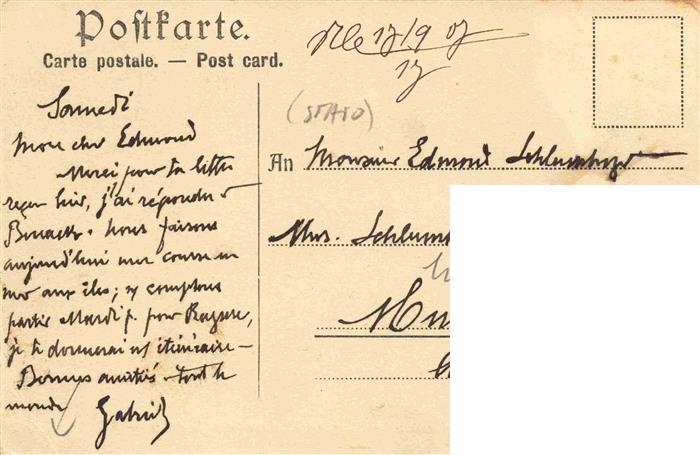 Postkarte.
Carte postale. — Post card.
17/9 07
17
(STATO)
Samedi
Mon cher Edmond
Merci pour ta lettre
reçue hier, j'ai répondu à
Nous faisons
aujourd'hui une course en
mer aux îles; ns comptons
partir Mardi p. pour Raguse,
je te donnerai ns itinéraire —
Bonnes amitiés tout le
monde
Gabriel
An Monsieur Edmond Schlumberger
Mrs. Schlum
Mu